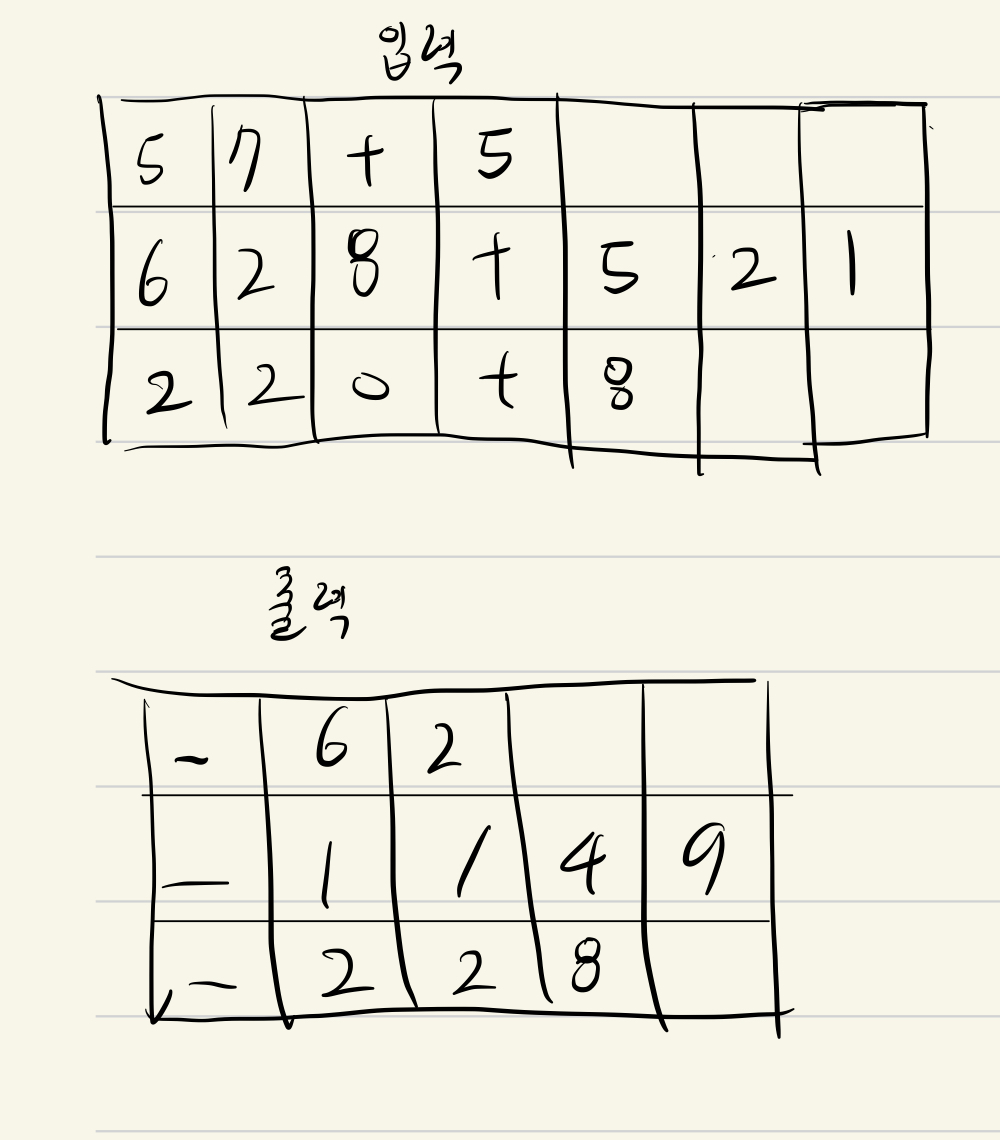 입력
5 7 + 5
6 2 8 + 5 2 1
2 2 0 + 8
출력
- 6 2
- 1 1 4 9
- 2 2 8